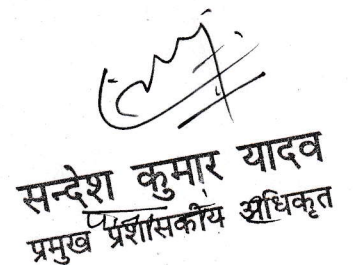 सन्देश कुमार यादव
प्रमुख प्रशासकीय अधिकृत